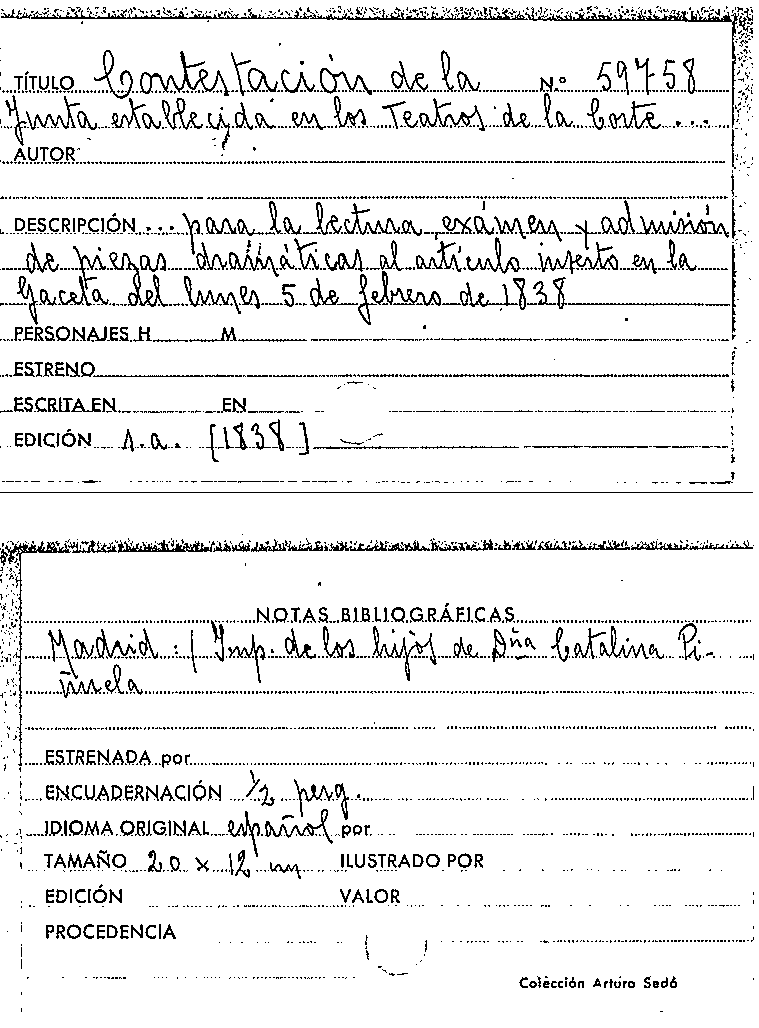 TÍTULO Contestación de la N.º 59758
Junta establecida en los Teatros de la Corte...
AUTOR
DESCRIPCIÓN ... para la lectura, exámen y admisión
de piezas dramáticas al artículo inserto en la
Gaceta del lunes 5 de febrero de 1838
PERSONAJES H M
ESTRENO
ESCRITA EN EN
EDICIÓN s.a. [1838]
NOTAS BIBLIOGRÁFICAS
Madrid : / Imp. de los hijos de Dña Catalina Pi-
ñuela
ESTRENADA por
ENCUADERNACIÓN 1/2 perg.
IDIOMA ORIGINAL español por
TAMAÑO 20 x 12 ILUSTRADO POR
EDICIÓN VALOR
PROCEDENCIA
Colección Arturo Sedó